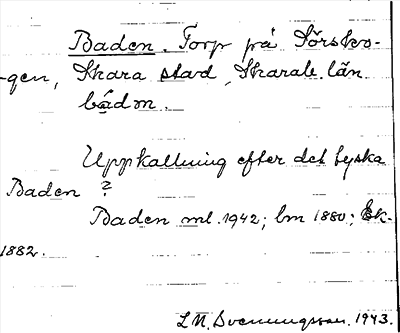 Baden. Torp på Sörsko-
-gen, Skara stad, Skarab. län.
bádm.
Uppkallning efter det tyska
Baden ?
Baden ml. 1942; lm 1880; Ek-
1882.
L M, Svenungsson. 1943.